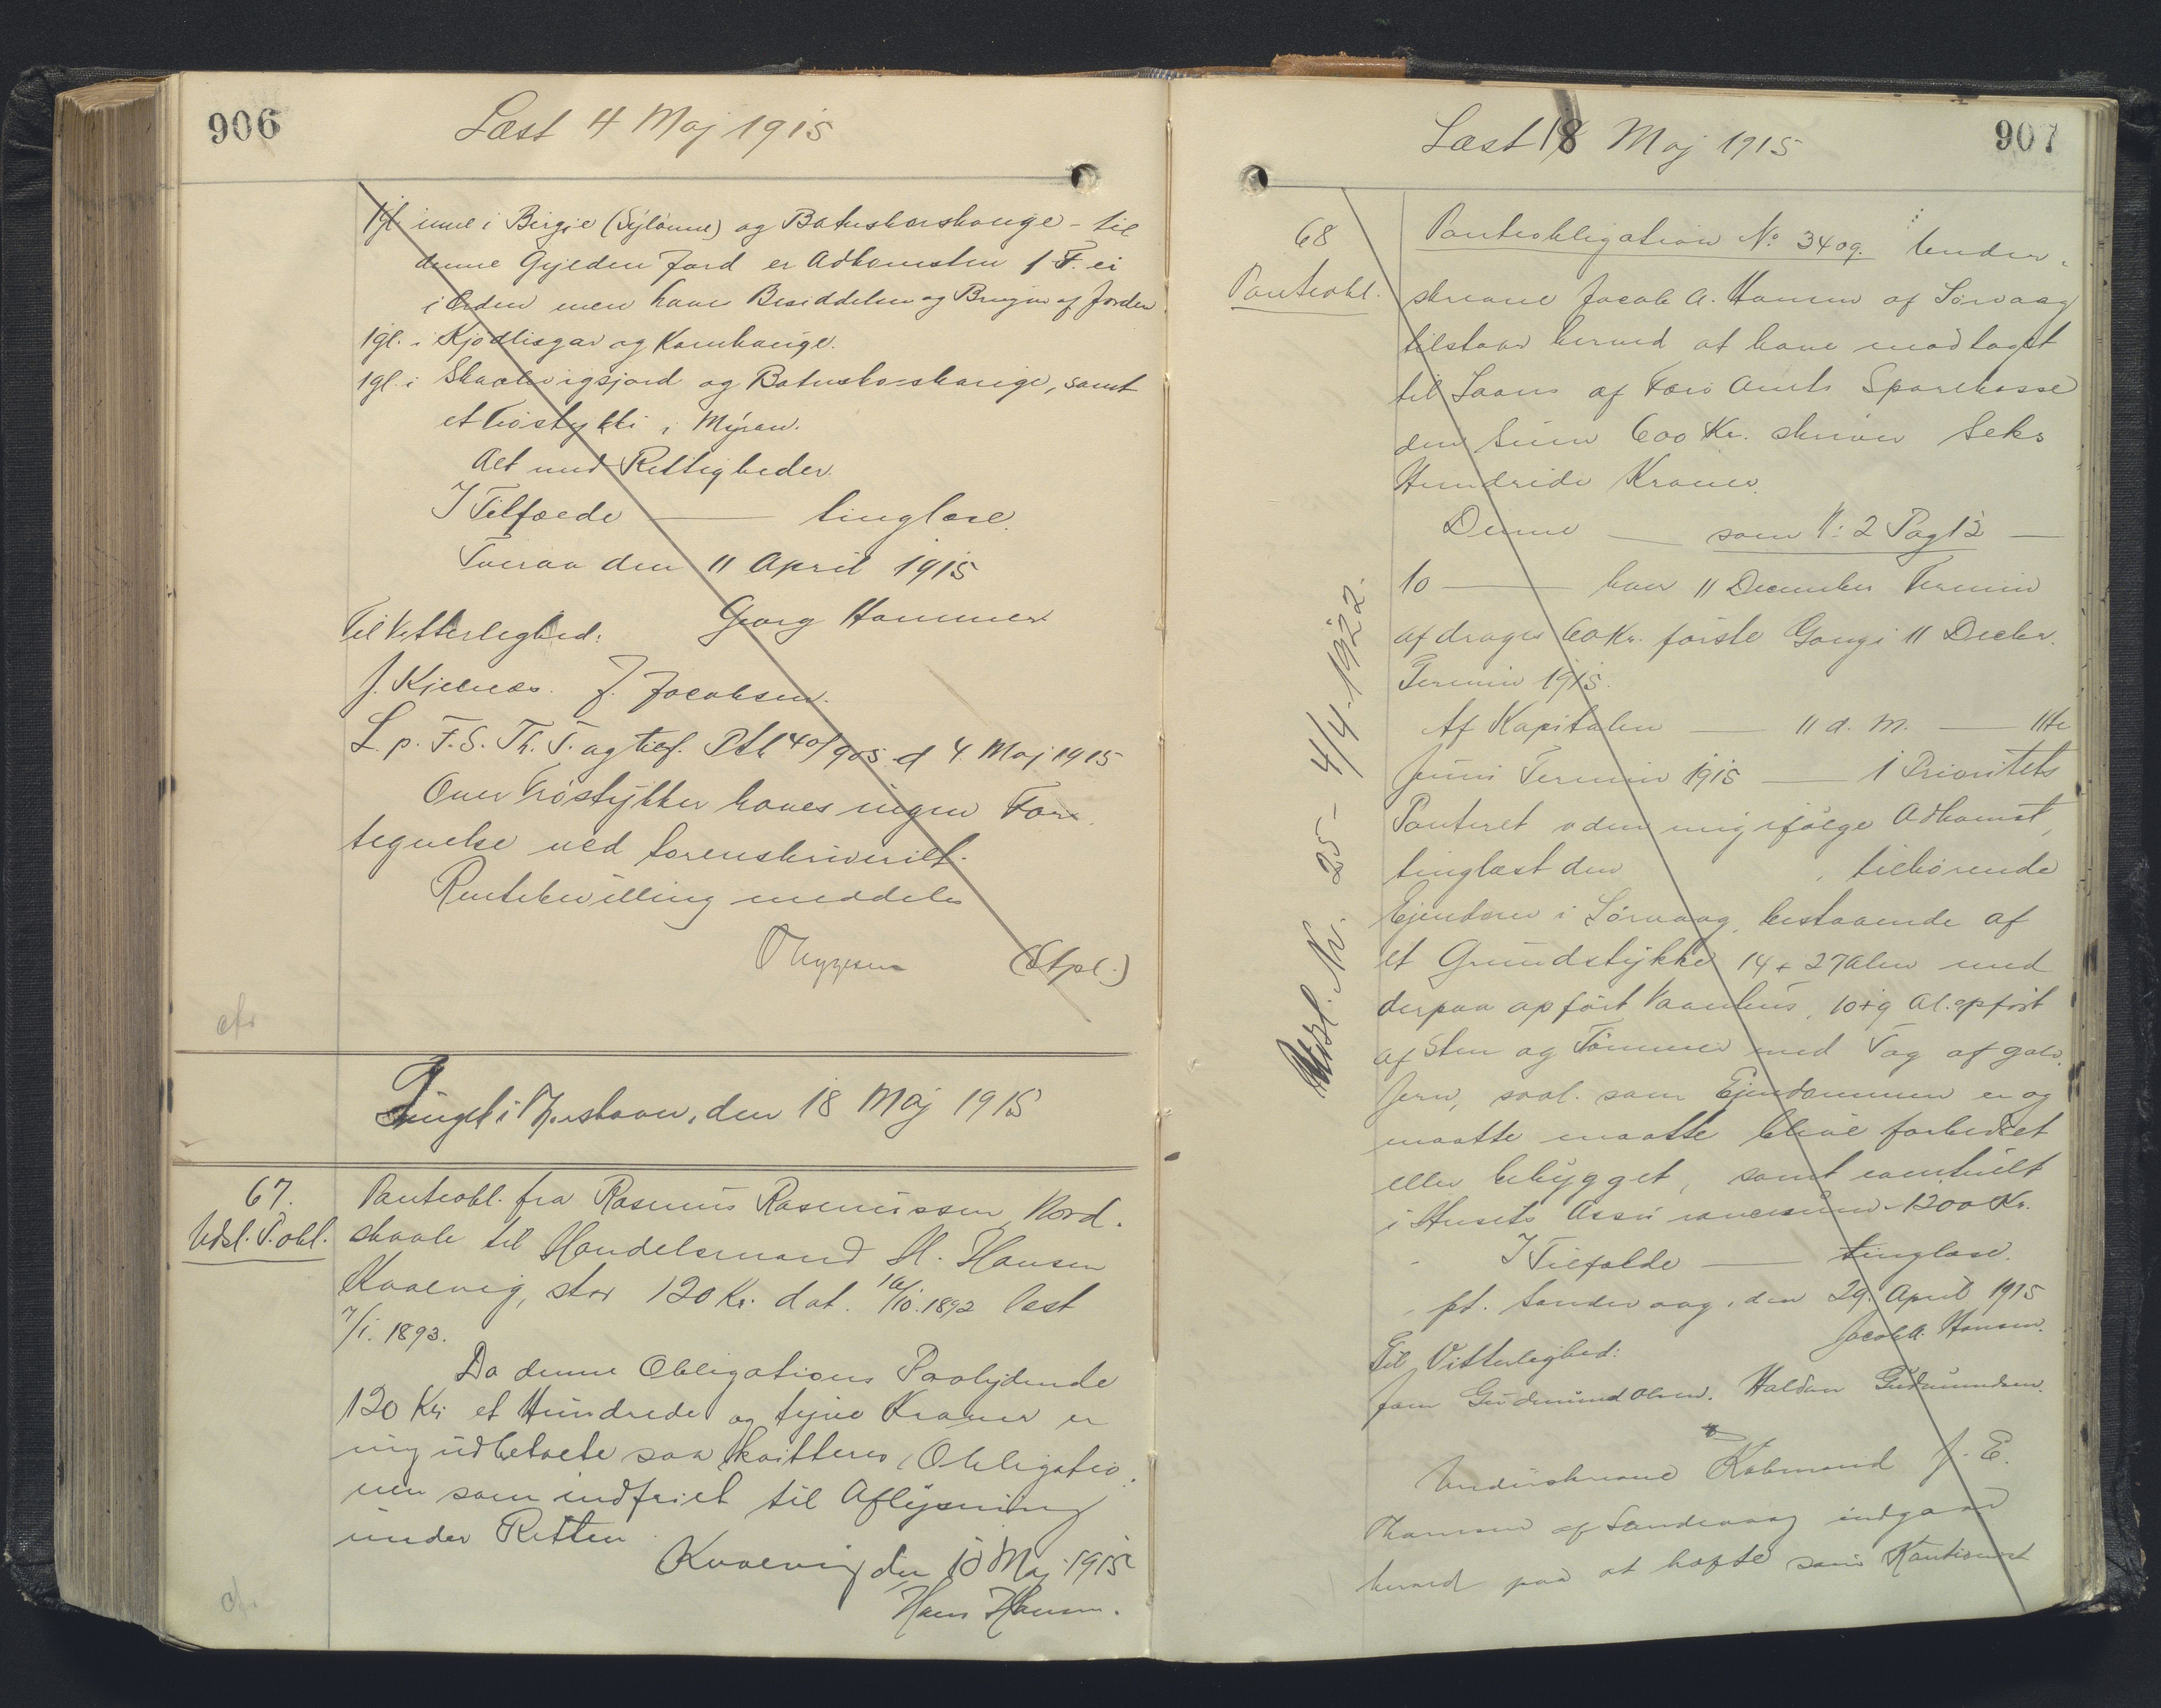 906
Læst 4 Maj 1915
1 gl. inne i Birgie (Sýlónne) og Batnskorshauge - til
denne Gyilden Jord er Adkomsten p. T. ei
i Orden men haves Besiddelsen og Brugen af Jorden.
1 gl. i Kjodlisgar og Karnhauge.
1 gl. i Skaalvigsjord og Batnskorshauge, samt
et Trøstykki i Mýran.
Alt med Rettigheder.
I Tilfælde — tinglæse.
Tveraa den 11 April 1915
Georg Hammer
Til Vitterlighed:
J. Kjelnæs. J. Jacobsen.
L. p. F. S. Th. T. og tilf. Ptb 40/905 d 4. Maj 1915
Over Trøstykker haves ingen For-
tegnelse ved Sorenskriveriet.
Rentebevilling meddeles
(Stpl.)
Tinget i Thorshavn, den 18 Maj 1915
67.
Udsl. P. obl.
Panteobl. fra Rasmus Rasmussen Nord-
skaale til Handelsmand H. Hansen
Kvalvig, stor 120 Kr. dat. 10/10. 1892 læst
7/1. 1893.
Da denne Obligations Paalydende
120 Kr. et Hundrede og tyve Kroner er
mig udbetalte saa kvitteres Obligatio-
nen som indfriet til Aflysning
under Retten
Kvalvig den 10 Maj 1915
Hans Hansen.
Læst 18 Maj 1915
907
68
Panteobl.
Panteobligation No 3409. Under-
skrevne Jacob A. Hansen af Sørvaag
tilstaar herved at have modtaget
til Laans af Færø Amts Sparekasse
den Sum 600 Kr. skriver Seks
Hundrede Kroner.
Denne — som N: 2 Pag 12 —
10 — hver 11 December Termin
afdrages 60 Kr. første Gang i 11 Decbr.
Termin 1915.
Af Kapitalen — 11 d. M. — 11te
Juni Termin 1915 — 1 Prioritets
Panteret i den mig ifølge Adkomst,
tinglæst den , tilhørende
Ejendom i Sørvaag, bestaaende af
et Grundstykke 14 + 27 Alen med
derpaa opført Vaanhus, 10+9 Al. opført
af Sten og Tømmer med Tag af galv.
Jern, saal. som Ejendommen er og
maatte maatte blive forbedret
eller bebygget, samt eventuelt
i Husets Assurancesum 1200 Kr.
I Tilfælde — tinglæse.
pt. Sandevaag, den 29. April 1915
Jacob A. Hansen.
Til Vitterlighed:
Joen Gudmund Olsen. Haldan Gudmundsen.
Underskrevne Købmand J. E.
Thomsen af Sandevaag indgaar
herved paa at hæfte som Kautionist
Udsl. Nr. 25 - 4/4. 1922.